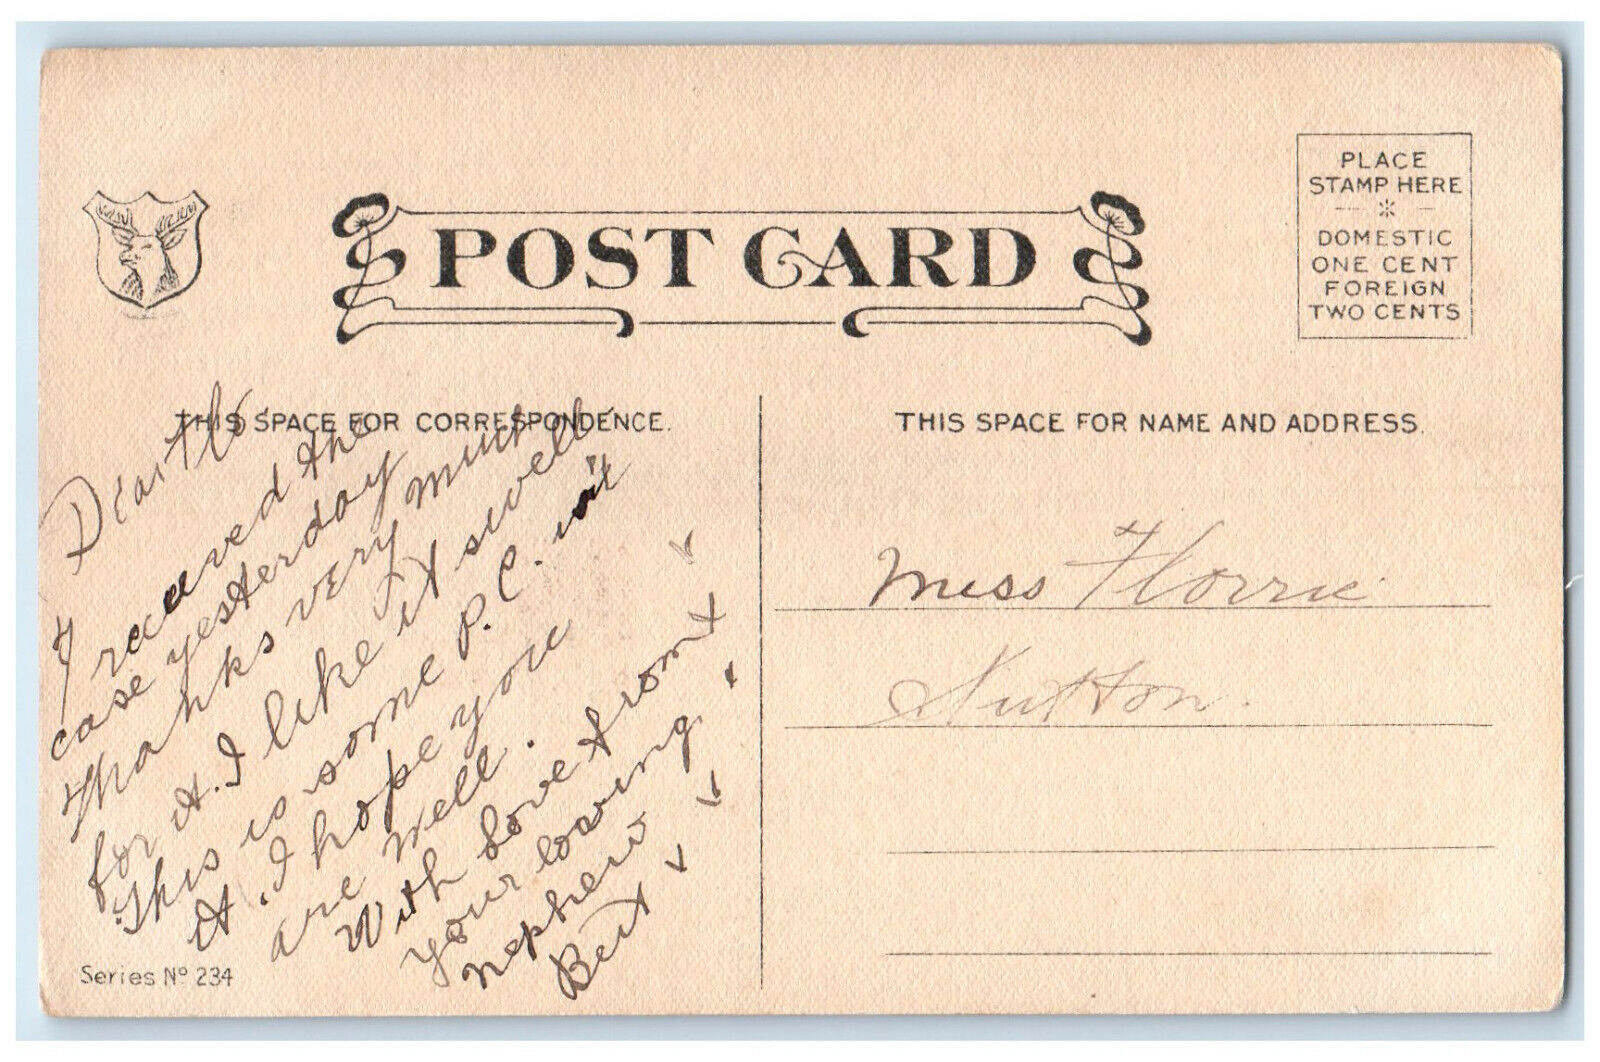 POST CARD
PLACE
STAMP HERE
DOMESTIC
ONE CENT
FOREIGN
TWO CENTS
THIS SPACE FOR CORRESPONDENCE.
THIS SPACE FOR NAME AND ADDRESS.
Dear Flo.
I received the
case yesterday
thanks very much
for it. I like it swell
This is some P.C. isn't
it. I hope you
are well.
With Love from
your loving
nephew
Bert
Miss Florrie
Sutton.
Series No 234